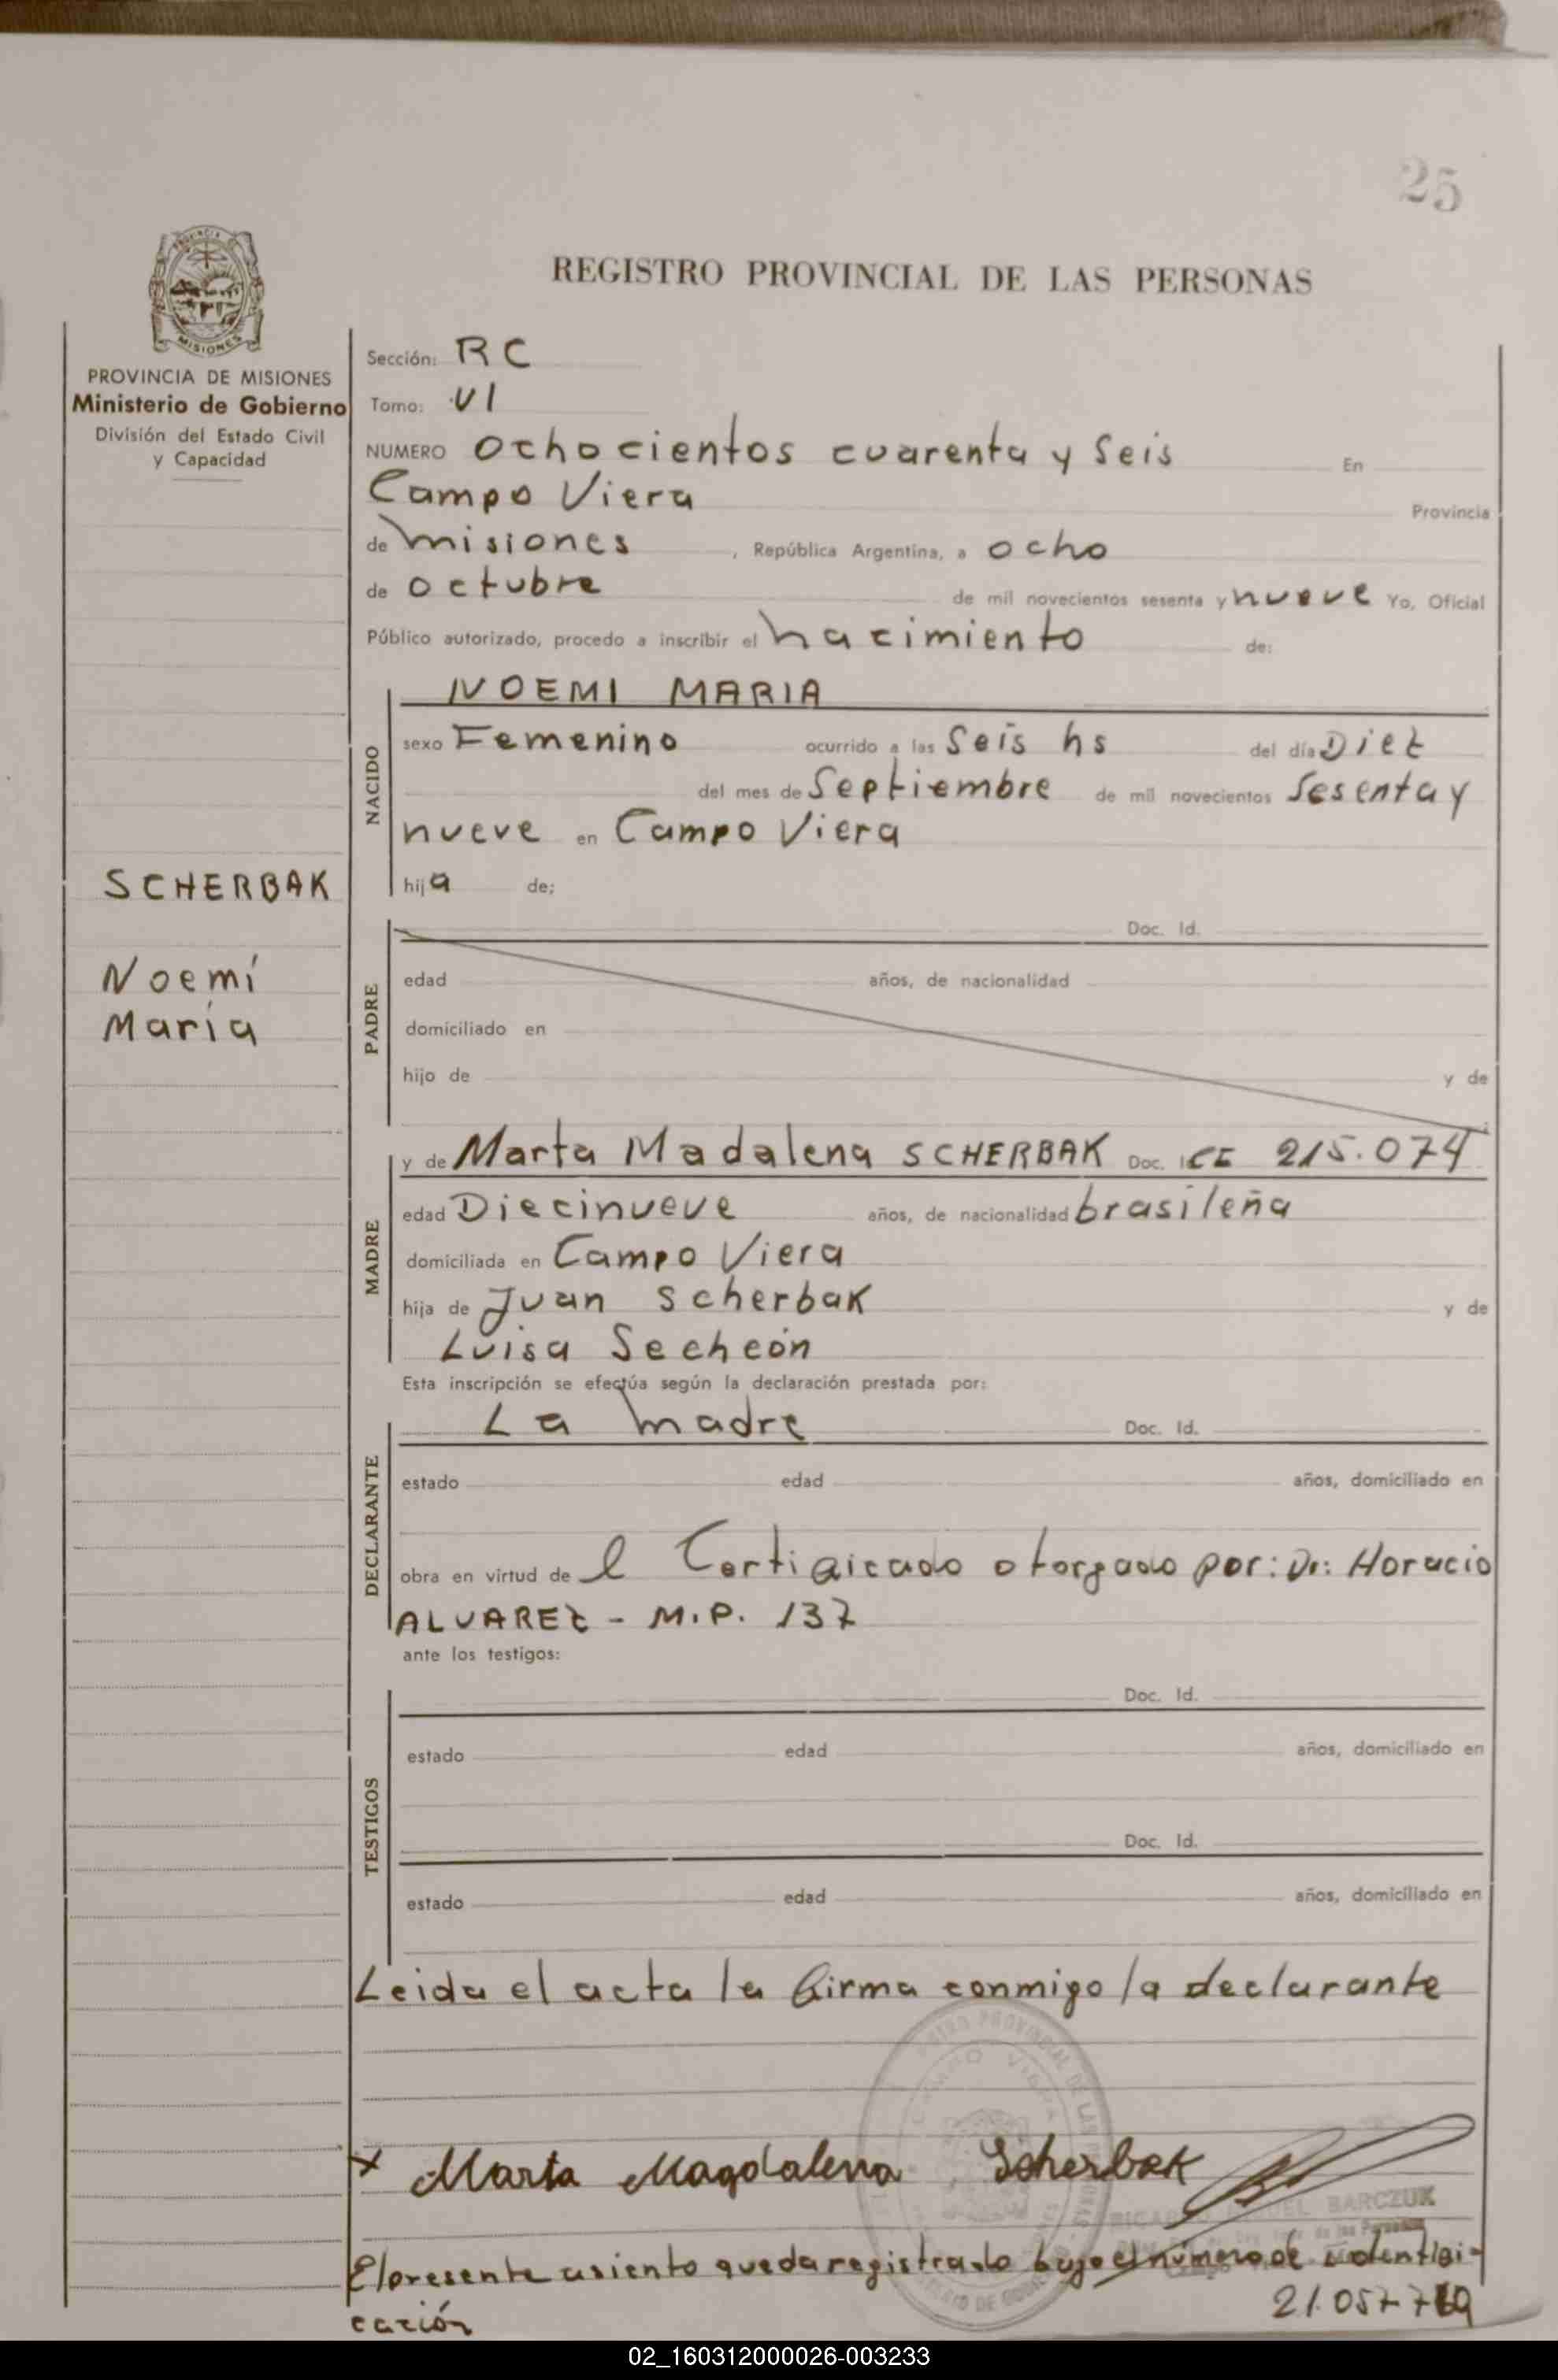 25
REGISTRO PROVINCIAL DE LAS PERSONAS
PROVINCIA
MISIONES
PROVINCIA DE MISIONES
Ministerio de Gobierno
División del Estado Civil
y Capacidad
Sección: RC
Tomo: VI
NUMERO Ochocientos cuarenta y Seis En
Campo Viera Provincia
de misiones , República Argentina, a ocho
de octubre de mil novecientos sesenta y nueve Yo, Oficial
Público autorizado, procedo a inscribir el nacimiento de:
NACIDO
NOEMI MARIA
sexo Femenino ocurrido a las Seis hs del día Diez
del mes de Septiembre de mil novecientos Sesenta y
nueve en Campo Viera
hija de:
SCHERBAK
Noemí
María
PADRE
Doc. Id.
edad años, de nacionalidad
domiciliado en
hijo de y de
MADRE
y de Marta Madalena SCHERBAK Doc. I CE 215.074
edad Diecinueve años, de nacionalidad brasileña
domiciliada en Campo Viera
hija de Juan Scherbak y de
Luisa Secheón
Esta inscripción se efectúa según la declaración prestada por:
DECLARANTE
La madre Doc. Id.
estado edad años, domiciliado en
obra en virtud de l Certificado otorgado por: Dr: Horacio
ALVAREZ - M.P. 137
ante los testigos:
TESTIGOS
Doc. Id.
estado edad años, domiciliado en
Doc. Id.
estado edad años, domiciliado en
Leida el acta la firma conmigo la declarante
x Marta Magdalena Scherbak
BARCZUK
El presente asiento queda registrado bajo el número de identifi-
cación 21.057.7
02_160312000026-003233